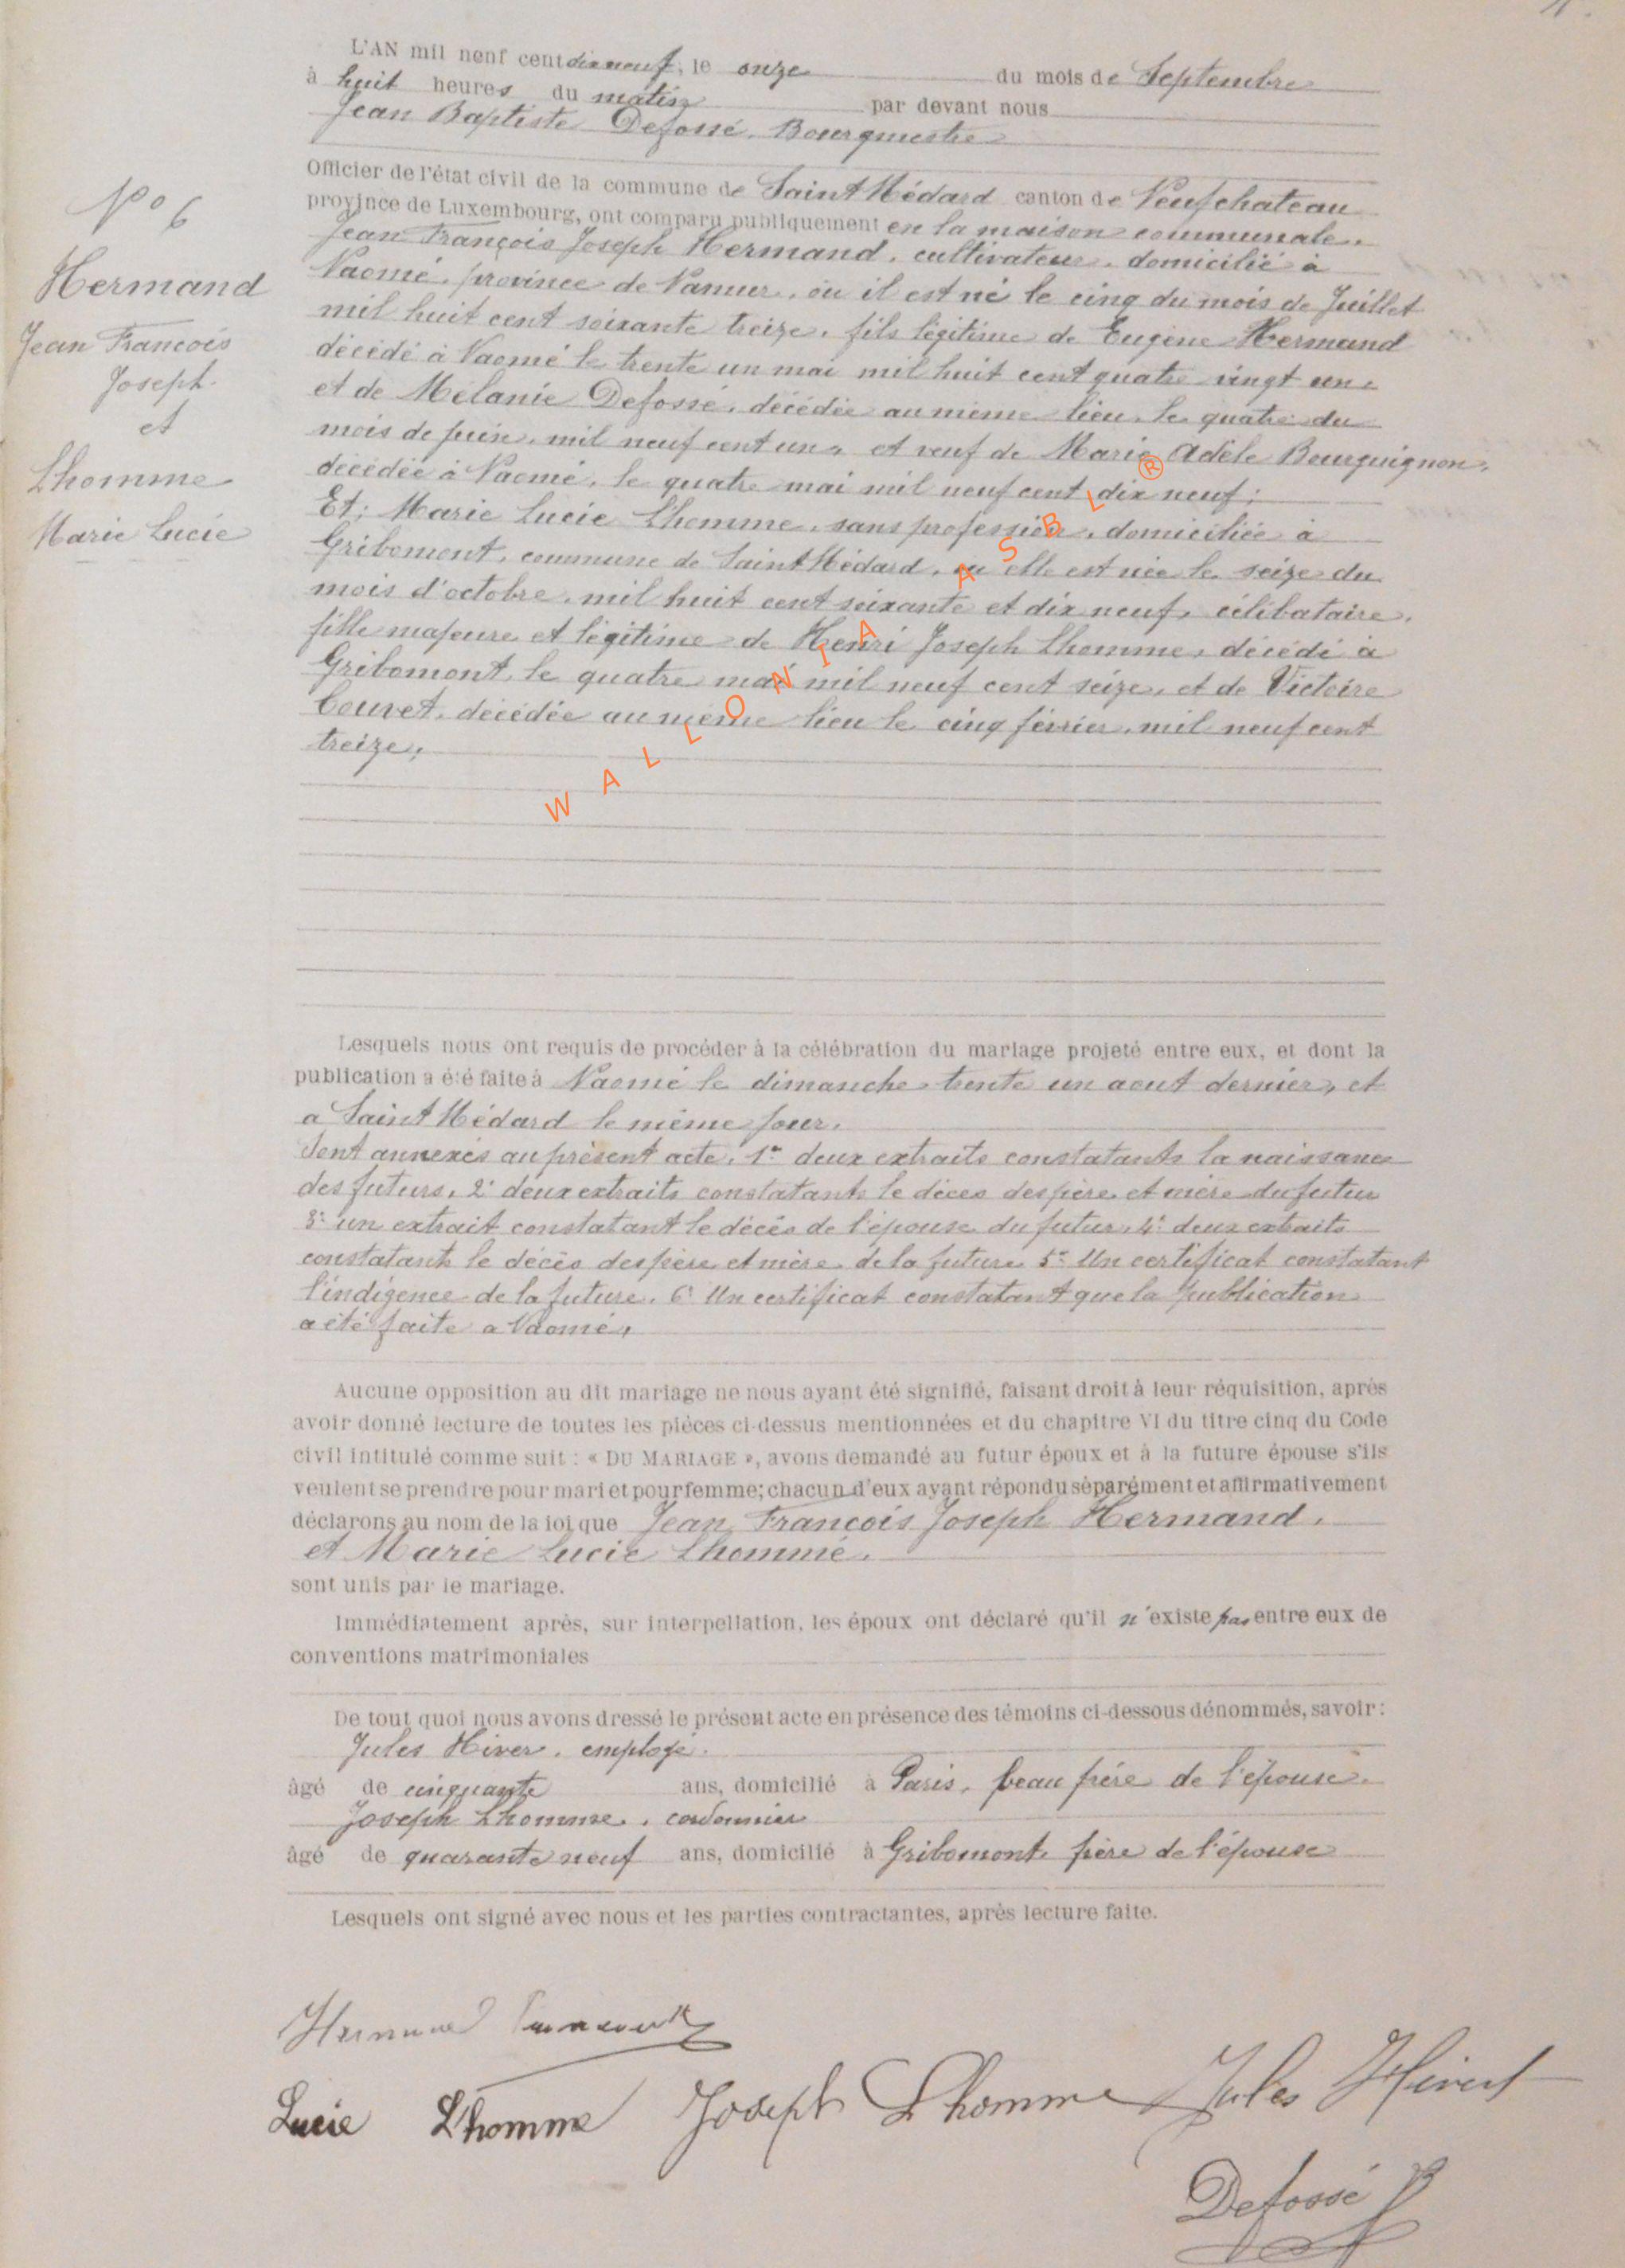 L'AN mil neuf cent dix neuf, le onze du mois de Septembre
à huit heures du matin par devant nous
Jean Baptiste Defossé, Bourgmestre
Officier de l'état civil de la commune de Saint Médard canton de Neufchateau
province de Luxembourg, ont comparu publiquement en la maison communale,
Jean François Joseph Hermand, cultivateur, domicilié à
Naomé, province de Namur, ou il est né le cinq du mois de Juillet
mil huit cent soixante treize, fils légitime de Eugène Hermand
décédé à Naomé le trente un mai mil huit cent quatre vingt un,
et de Mélanie Defossé, décédée au même lieu, le quatre du
mois de juin, mil neuf cent un, et veuf de Marie Adèle Bourguignon,
décédée à Naomé, le quatre mai mil neuf cent dix neuf;
Et: Marie Lucie Lhomme, sans profession, domiciliée à
Gribomont, commune de Saint Médard, ou elle est née le seize du
mois d'octobre, mil huit cent soixante et dix neuf, célibataire,
fille majeure et légitime de Henri Joseph Lhomme, décédé à
Gribomont, le quatre mai mil neuf cent seize, et de Victoire
Couvet, décédée au même lieu le cinq février, mil neuf cent
treize,
N° 6
Hermand
Jean François
Joseph.
et
Lhomme
Marie Lucie
WALLONIA ASBL ®
Lesquels nous ont requis de procéder à la célébration du mariage projeté entre eux, et dont la
publication a été faite à Naomé le dimanche trente un aout dernier, et
a Saint Médard le même jour.
Sont annexés au présent acte, 1° deux extraits constatants la naissance
des futurs, 2° deux extraits constatants le décès des père et mère du futur
3° un extrait constatant le décès de l'épouse du futur, 4° deux extraits
constatants le décès des père et mère de la future 5° Un certificat constatant
l'indigence de la future, 6° Un certificat constatant que la publication
a été faite a Naomé,
Aucune opposition au dit mariage ne nous ayant été signifié, faisant droit à leur réquisition, après
avoir donné lecture de toutes les pièces ci-dessus mentionnées et du chapitre VI du titre cinq du Code
civil intitulé comme suit : « DU MARIAGE », avons demandé au futur époux et à la future épouse s'ils
veulent se prendre pour mari et pour femme; chacun d'eux ayant répondu séparément et affirmativement
déclarons au nom de la loi que Jean François Joseph Hermand,
et Marie Lucie Lhomme,
sont unis par le mariage.
Immédiatement après, sur interpellation, les époux ont déclaré qu'il n'existe pas entre eux de
conventions matrimoniales
De tout quoi nous avons dressé le présent acte en présence des témoins ci-dessous dénommés, savoir :
Jules Hiver, employé.
âgé de cinquante ans, domicilié à Paris, beau frére de l'épouse.
Joseph Lhomme, cordonnier
âgé de quarante neuf ans, domicilié à Gribomont, frère de l'épouse
Lesquels ont signé avec nous et les parties contractantes, après lecture faite.
Hermand
Lucie Lhomme Joseph Lhomme Jules Hivert
Defossé